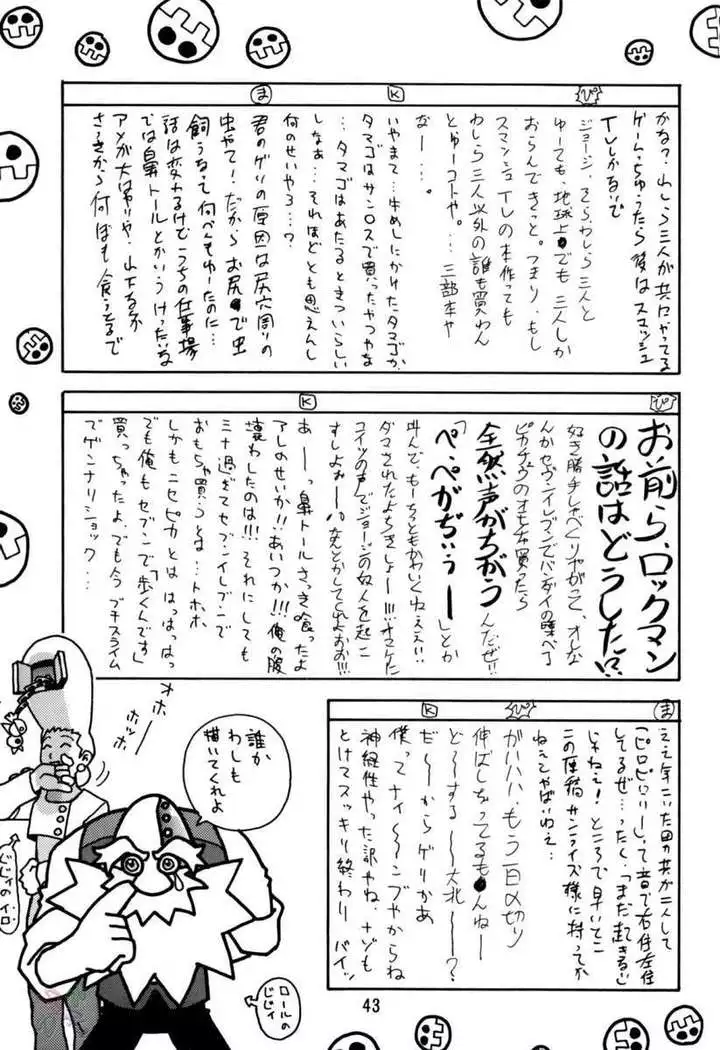 ま
K
ぴ
かな?わしら三人が共にやってる
ゲームっちゅうたら後はスマッシュ
TVしかないで
ジョージ、そらわしら三人と
ゆーても、地球上でも三人しか
おらんできっと。つまり、もし
スマッシュTVの本作っても
わしら三人以外の誰も買わん
とゆーコトや。…三部本や
なー…。
いやまて…牛めしにかけたタマゴか
…タマゴはサンロスで買ったやつやな
タマゴはあたるときついらしい
しなぁ…それほどとも思えんし
何のせいやろ…?
君のゲリの原因な尻穴周りの
虫やで!だからお尻で虫
飼うなって何べんもゆーたのに…
話は変わるけどうちの仕事場
では鼻トールとかいうけったいな
アメが大はやりや、山下なんか
さっきから何ぼも食うてるで
K
ぴ
お前ら、ロックマン
の話はどうした!?
好き勝手しゃべくりやがって、オレな
んかセブンイレブンでバンダイの喋べる
ピカチュウのオモチャ買ったら
全然声がちがう
んだぜ!!
「ぺ、ぺがぢぃぅー」とか
叫んで、もーちっともかわいくねえ!!
ダマされたよちきしょー!!!オマケに
コイツの声でジョージの奴人を起こ
すしよぉー!!なんとかしてくれよぉぉ!!!
あーっ鼻トールさっき食ったよ
アレのせいか!!あいつか!!!俺の腹
壊わしたのは!!!それにしても
ミナ過ぎてセブンイレブンで
おもちゃ買うとは…トホホ
しかもニセピカとははっはっはっ
でも俺もセブンで「歩くんです」
買っちゃったよ、でも今プチスライム
でゲンナリショック…
K
ぴ
ま
ええ年こいた田の共が二人して
「ピロピロリー」って音で右往左往
してるぜ…ったく、「まだ起きるな」
じゃねえ!ところで早いとこ
この原稿サンライズ様に持ってか
ねえとやばいねえ…
ガハハハ、もう百〆切り
伸ばしちってるもんねー
ど〜する〜大北〜?
だ〜からゲリかあ
僕ってナイ〜ンブやからね
神経性やった訳やね、ナゾも
とけてスッキリ終わり バイッ
オホー
ホッホー
誰か
わしも
描いてくれよ
じじィのイロ
ロールの
じじィ
43